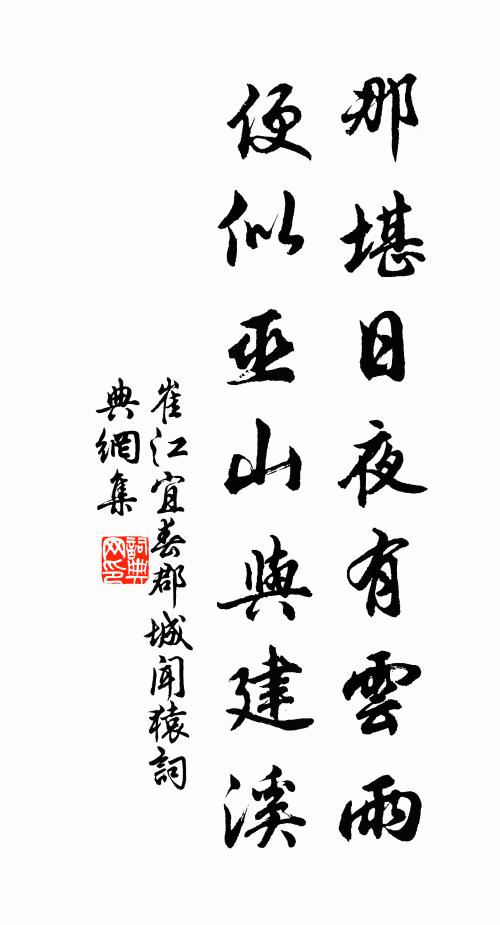 那堪日夜有雲雨
便似巫山與建溪
崔江宜春郡城聞猿詞
典網集
詞典
网印